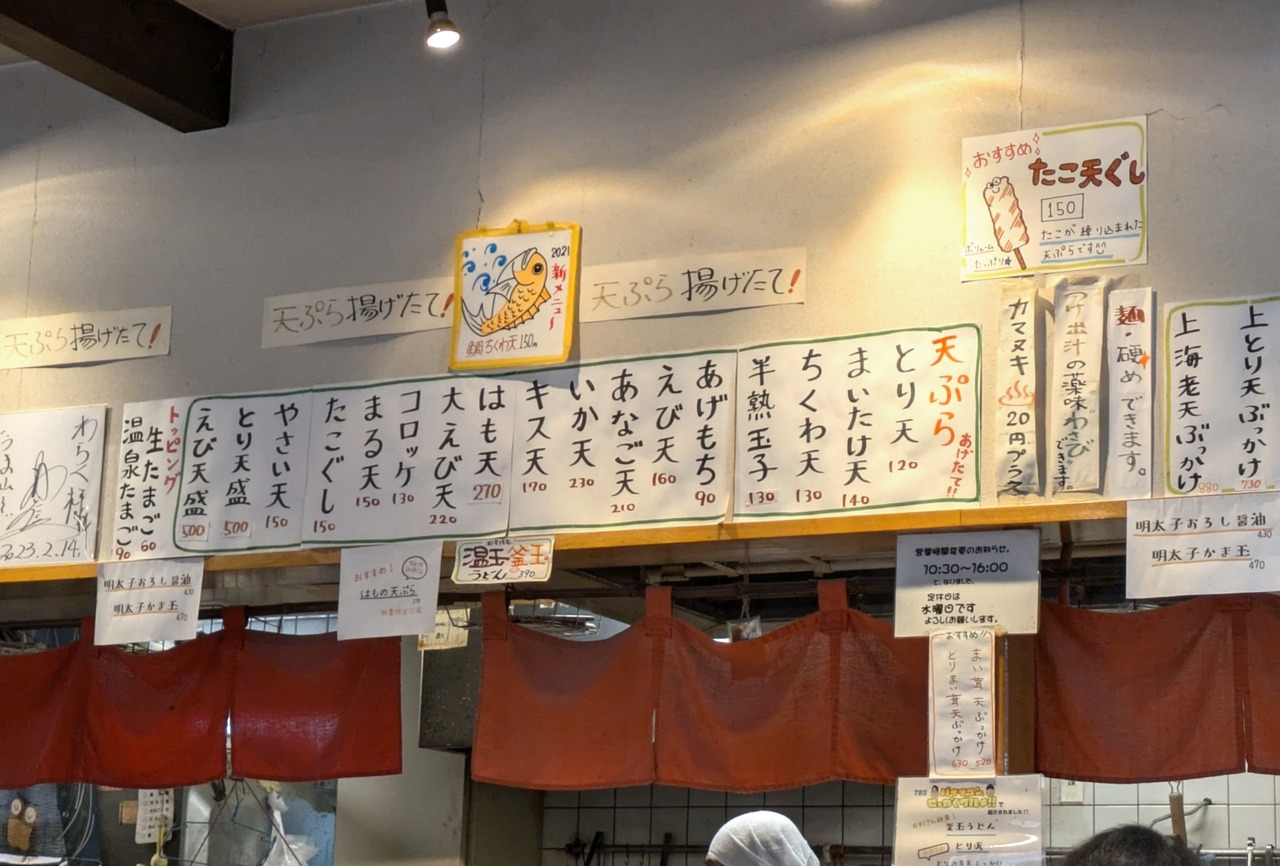 おすすめ
たこ天ぐし
150
たこが練り込まれた
天ぷらです
ボリューム
たっぷり
2021
新メニュー
鯛ちくわ天150
天ぷら揚げたて!
天ぷら揚げたて!
天ぷら揚げたて!
上とり天ぶっかけ 730
上海老天ぶっかけ 880
麺・硬めできます。
つけ出汁の薬味わさびできます。
カマヌキ♨20円プラス
天ぷら あげたて!!
とり天 120
まいたけ天 140
ちくわ天 130
半熟玉子 130
あげもち 90
えび天 160
あなご天 210
いか天 230
キス天 170
はも天 270
大えび天 220
コロッケ 130
まる天 150
たこぐし 150
やさい天 150
とり天盛 500
えび天盛 500
トッピング
生たまご 60
温泉たまご 90
わらく様
2023.2.14.
明太子おろし醤油
430
明太子かま玉
470
おすすめ!
はもの天ぷら
温玉釜玉
うどん 390
営業時間変更のお知らせ。
10:30~16:00
と、なりました。
定休日は
水曜日です
よろしくお願いします。
明太子おろし醤油
430
明太子かま玉
470
おすすめ!!
まい茸天ぶっかけ 520
とりまい茸天ぶっかけ 630
TBS
で
紹介されました!!
釜玉うどん
とり天